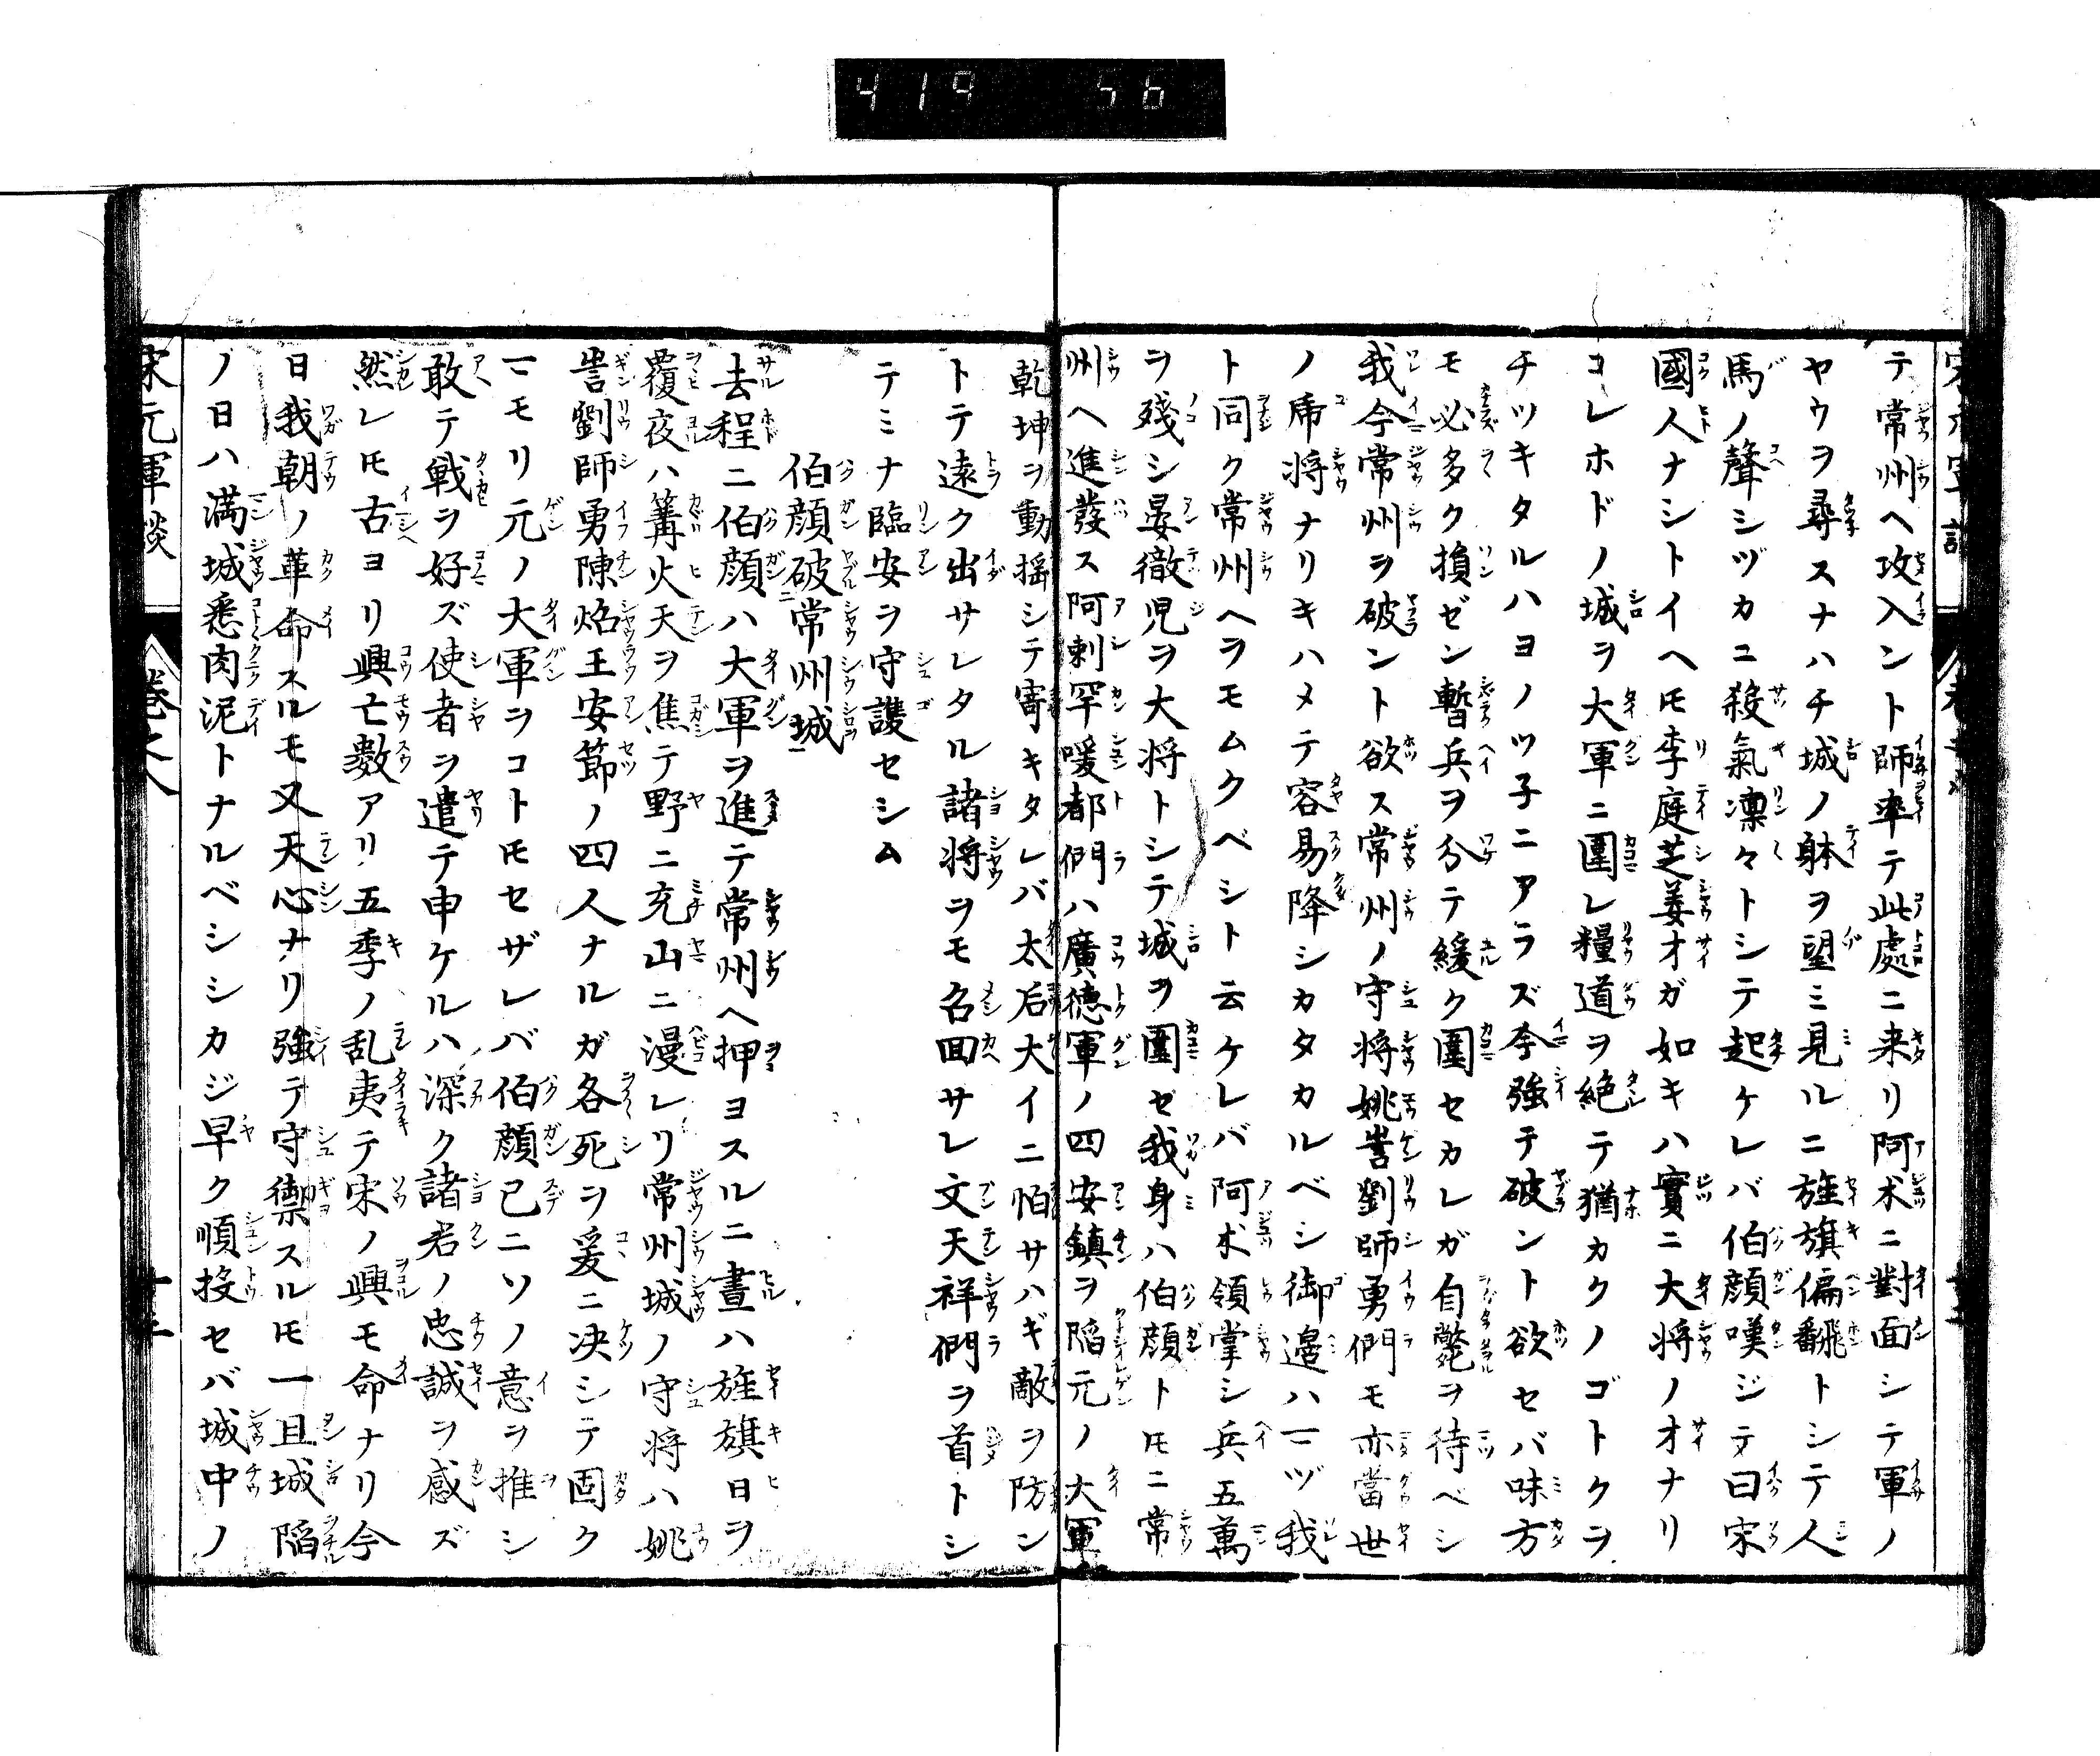 419 56
テ常州ヘ攻入ント師率テ此處ニ来リ阿术ニ對面シテ軍ノ
ヤウヲ尋スナハチ城ノ躰ヲ望ミ見ルニ旌旗偏飜トシテ人
馬ノ聲シヅカニ殺氣凛々トシテ起ケレバ伯顔嘆ジテ曰宋
國人ナシトイヘ𪜈李庭芝姜才ガ如キハ實ニ大将ノ才ナリ
コレホドノ城ヲ大軍ニ圍レ糧道ヲ絶テ猶カクノゴトクヲ
チツキタルハヨノツ子ニアラズ今強テ破ント欲セバ味方
モ必多ク損ゼン暫兵ヲ分テ緩ク圍セカレガ自斃ヲ待ベシ
我今常州ヲ破ント欲ス常州ノ守将姚訔劉師勇們モ亦當世
ノ虎将ナリキハメテ容易降シカタカルベシ御邉ハ一ヅ我
ト同ク常州ヘヲモムクベシト云ケレバ阿术領掌シ兵五萬
ヲ殘シ晏徹児ヲ大将トシテ城ヲ圍セ我身ハ伯顔ト𪜈ニ常
州ヘ進發ス阿剌罕㬉都們ハ廣德軍ノ四安鎮ヲ陷元ノ大軍
乾坤ヲ動揺シテ寄キタレバ太后大イニ怕サハギ敵ヲ防ン
トテ遠ク出サレタル諸将ヲモ名回サレ文天祥們ヲ首トシ
テミナ臨安ヲ守護セシム
伯顔破常州城
去程ニ伯顔ハ大軍ヲ進テ常州ヘ押ヨスルニ晝ハ旌旗日ヲ
覆夜ハ篝火天ヲ焦テ野ニ充山ニ漫レリ常州城ノ守将ハ姚
訔劉師勇陳炤王安節ノ四人ナルガ各死ヲ爰ニ决シテ固ク
一モリ元ノ大軍ヲコト𪜈セザレバ伯顔已ニソノ意ヲ推シ
敢テ戰ヲ好ズ使者ヲ遣テ申ケルハ深ク諸君ノ忠誠ヲ感ズ
然レ𪜈古ヨリ興亡數アリ五季ノ乱夷テ宋ノ興モ命ナリ今
日我朝ノ革命スルモ又天心ナリ強テ守禦スル𪜈一旦城陷
ノ日ハ満城悉肉泥トナルベシシカジ早ク順投セバ城中ノ
宋元軍談 卷之八 十三